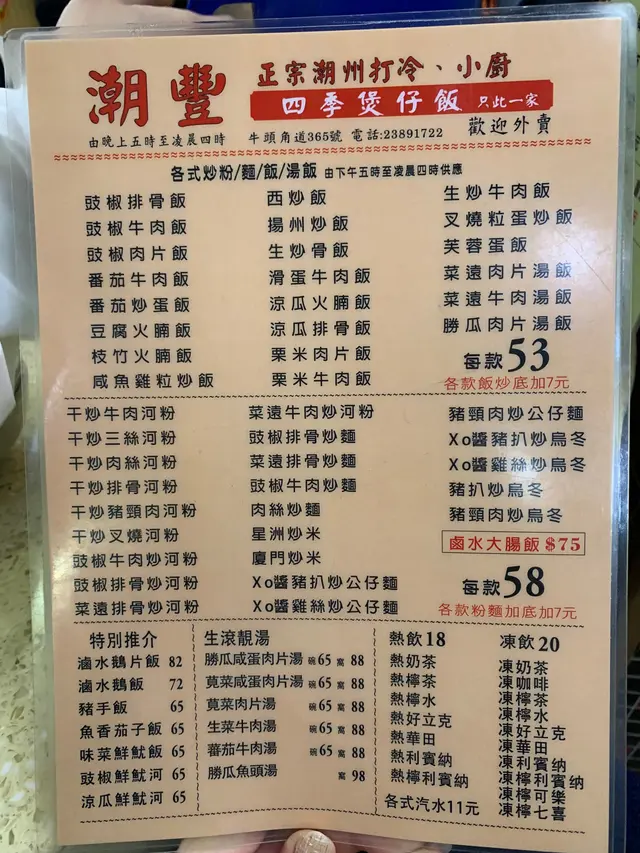 潮豐
正宗潮州打冷、小廚
四季煲仔飯 只此一家
由晚上五時至凌晨四時 牛頭角道365號 電話:23891722 歡迎外賣
各式炒粉/麵/飯/湯飯 由下午五時至凌晨四時供應
豉椒排骨飯
豉椒牛肉飯
豉椒肉片飯
番茄牛肉飯
番茄炒蛋飯
豆腐火腩飯
枝竹火腩飯
咸魚雞粒炒飯
西炒飯
揚州炒飯
生炒骨飯
滑蛋牛肉飯
涼瓜火腩飯
涼瓜排骨飯
栗米肉片飯
栗米牛肉飯
生炒牛肉飯
叉燒粒蛋炒飯
芙蓉蛋飯
菜遠肉片湯飯
菜遠牛肉湯飯
勝瓜肉片湯飯
每款53
各款飯炒底加7元
干炒牛肉河粉
干炒三絲河粉
干炒肉絲河粉
干炒排骨河粉
干炒豬頸肉河粉
干炒叉燒河粉
豉椒牛肉炒河粉
豉椒排骨炒河粉
菜遠排骨炒河粉
菜遠牛肉炒河粉
豉椒排骨炒麵
菜遠排骨炒麵
豉椒牛肉炒麵
肉絲炒麵
星洲炒米
廈門炒米
Xo醬豬扒炒公仔麵
Xo醬雞絲炒公仔麵
豬頸肉炒公仔麵
Xo醬豬扒炒烏冬
Xo醬雞絲炒烏冬
豬扒炒烏冬
豬頸肉炒烏冬
鹵水大腸飯 $75
每款58
各款粉麵加底加7元
特別推介
滷水鵝片飯 82
滷水鵝飯 72
豬手飯 65
魚香茄子飯 65
味菜鮮魷飯 65
豉椒鮮魷河 65
涼瓜鮮魷河 65
生滾靚湯
勝瓜咸蛋肉片湯 碗65 窩88
莧菜咸蛋肉片湯 碗65 窩88
莧菜肉片湯 碗65 窩88
生菜牛肉湯 碗65 窩88
蕃茄牛肉湯 碗65 窩88
勝瓜魚頭湯 窩98
熱飲18
熱奶茶
熱檸茶
熱檸水
熱好立克
熱華田
熱利賓納
熱檸利賓納
各式汽水11元
凍飲20
凍奶茶
凍咖啡
凍檸茶
凍檸水
凍好立克
凍華田
凍利賓納
凍檸利賓納
凍檸可樂
凍檸七喜